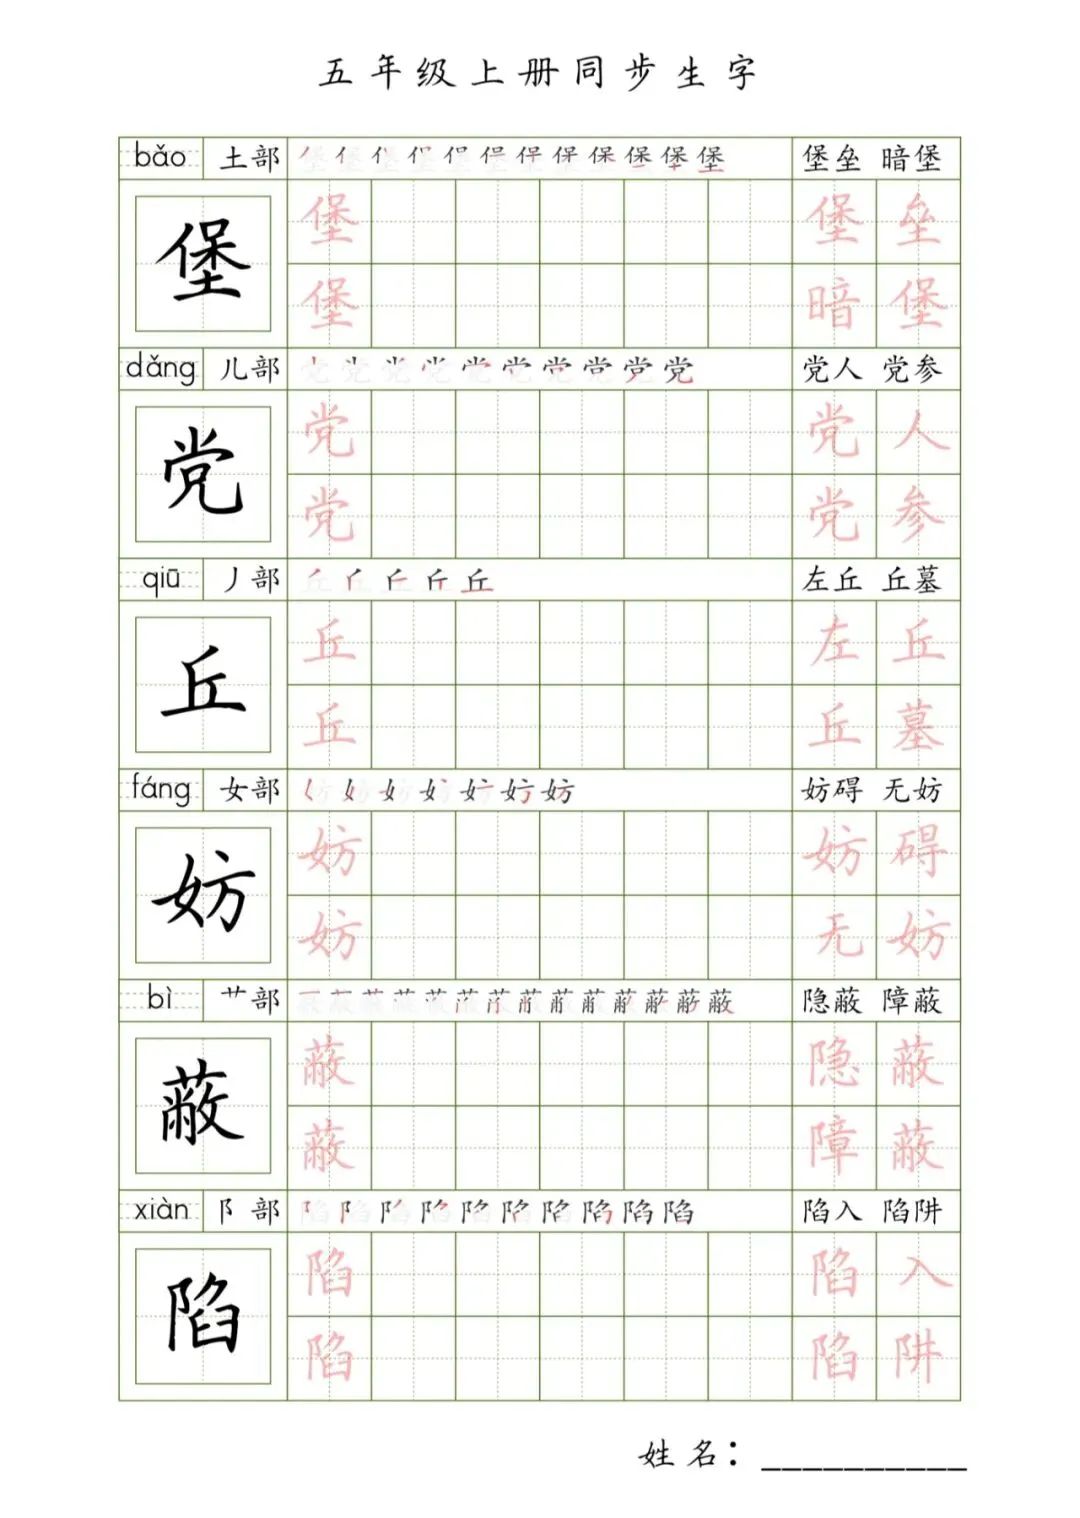 五年级上册同步生字
bǎo 土部 堡堡堡堡堡堡堡堡堡堡堡堡 堡垒 暗堡
堡 堡 堡 垒
堡 暗 堡
dǎng 儿部 党党党党党党党党党党 党人 党参
党 党 党 人
党 党 参
qiū 丿部 丘丘丘丘丘 左丘 丘墓
丘 丘 左 丘
丘 丘 墓
fáng 女部 妨妨妨妨妨妨妨 妨碍 无妨
妨 妨 妨 碍
妨 无 妨
bì 艹部 蔽蔽蔽蔽蔽蔽蔽蔽蔽蔽蔽蔽蔽蔽 隐蔽 障蔽
蔽 蔽 隐 蔽
蔽 障 蔽
xiàn 阝部 陷陷陷陷陷陷陷陷陷陷 陷入 陷阱
陷 陷 陷 入
陷 陷 阱
姓名：__________